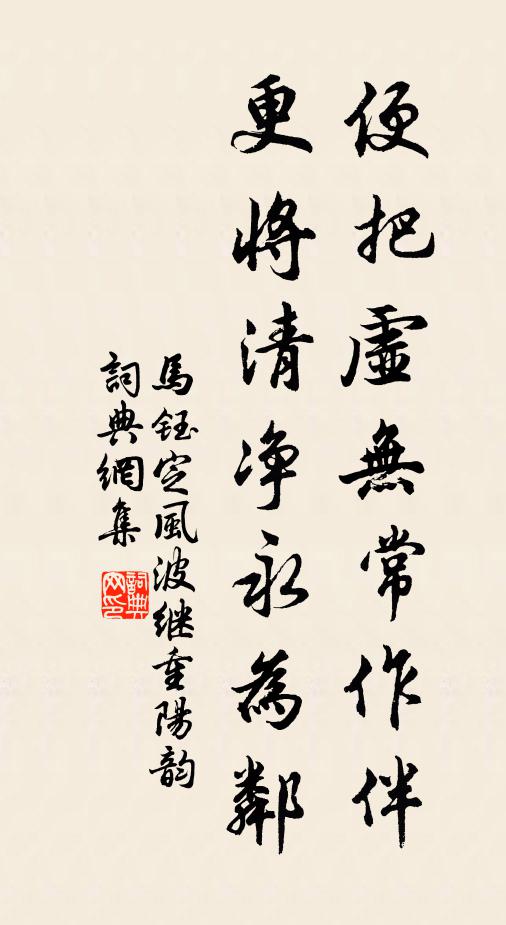 便把虛無常作伴
更將清净永為鄰
馬鈺定風波继重陽韵
詞典網集
詞典网印